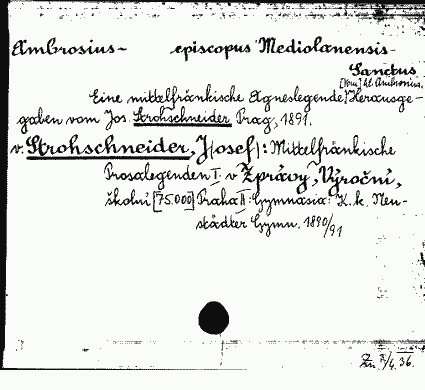 Ambrosius- episcopus Mediolanensis-
Sanctus
[Von] hl. Ambrosius.
Eine mittelfränkische Agneslegende/Herausge-
gaben vom Jos. Strohschneider Prag, 1891.
v. Strohschneider, J(osef): Mittelfränkische
Prosalegenden I. v Zprávy, Výroční,
školní [75.000] Praha II: Gymnasia: K. k. Neu-
städter Gymn. 1890/91
36.